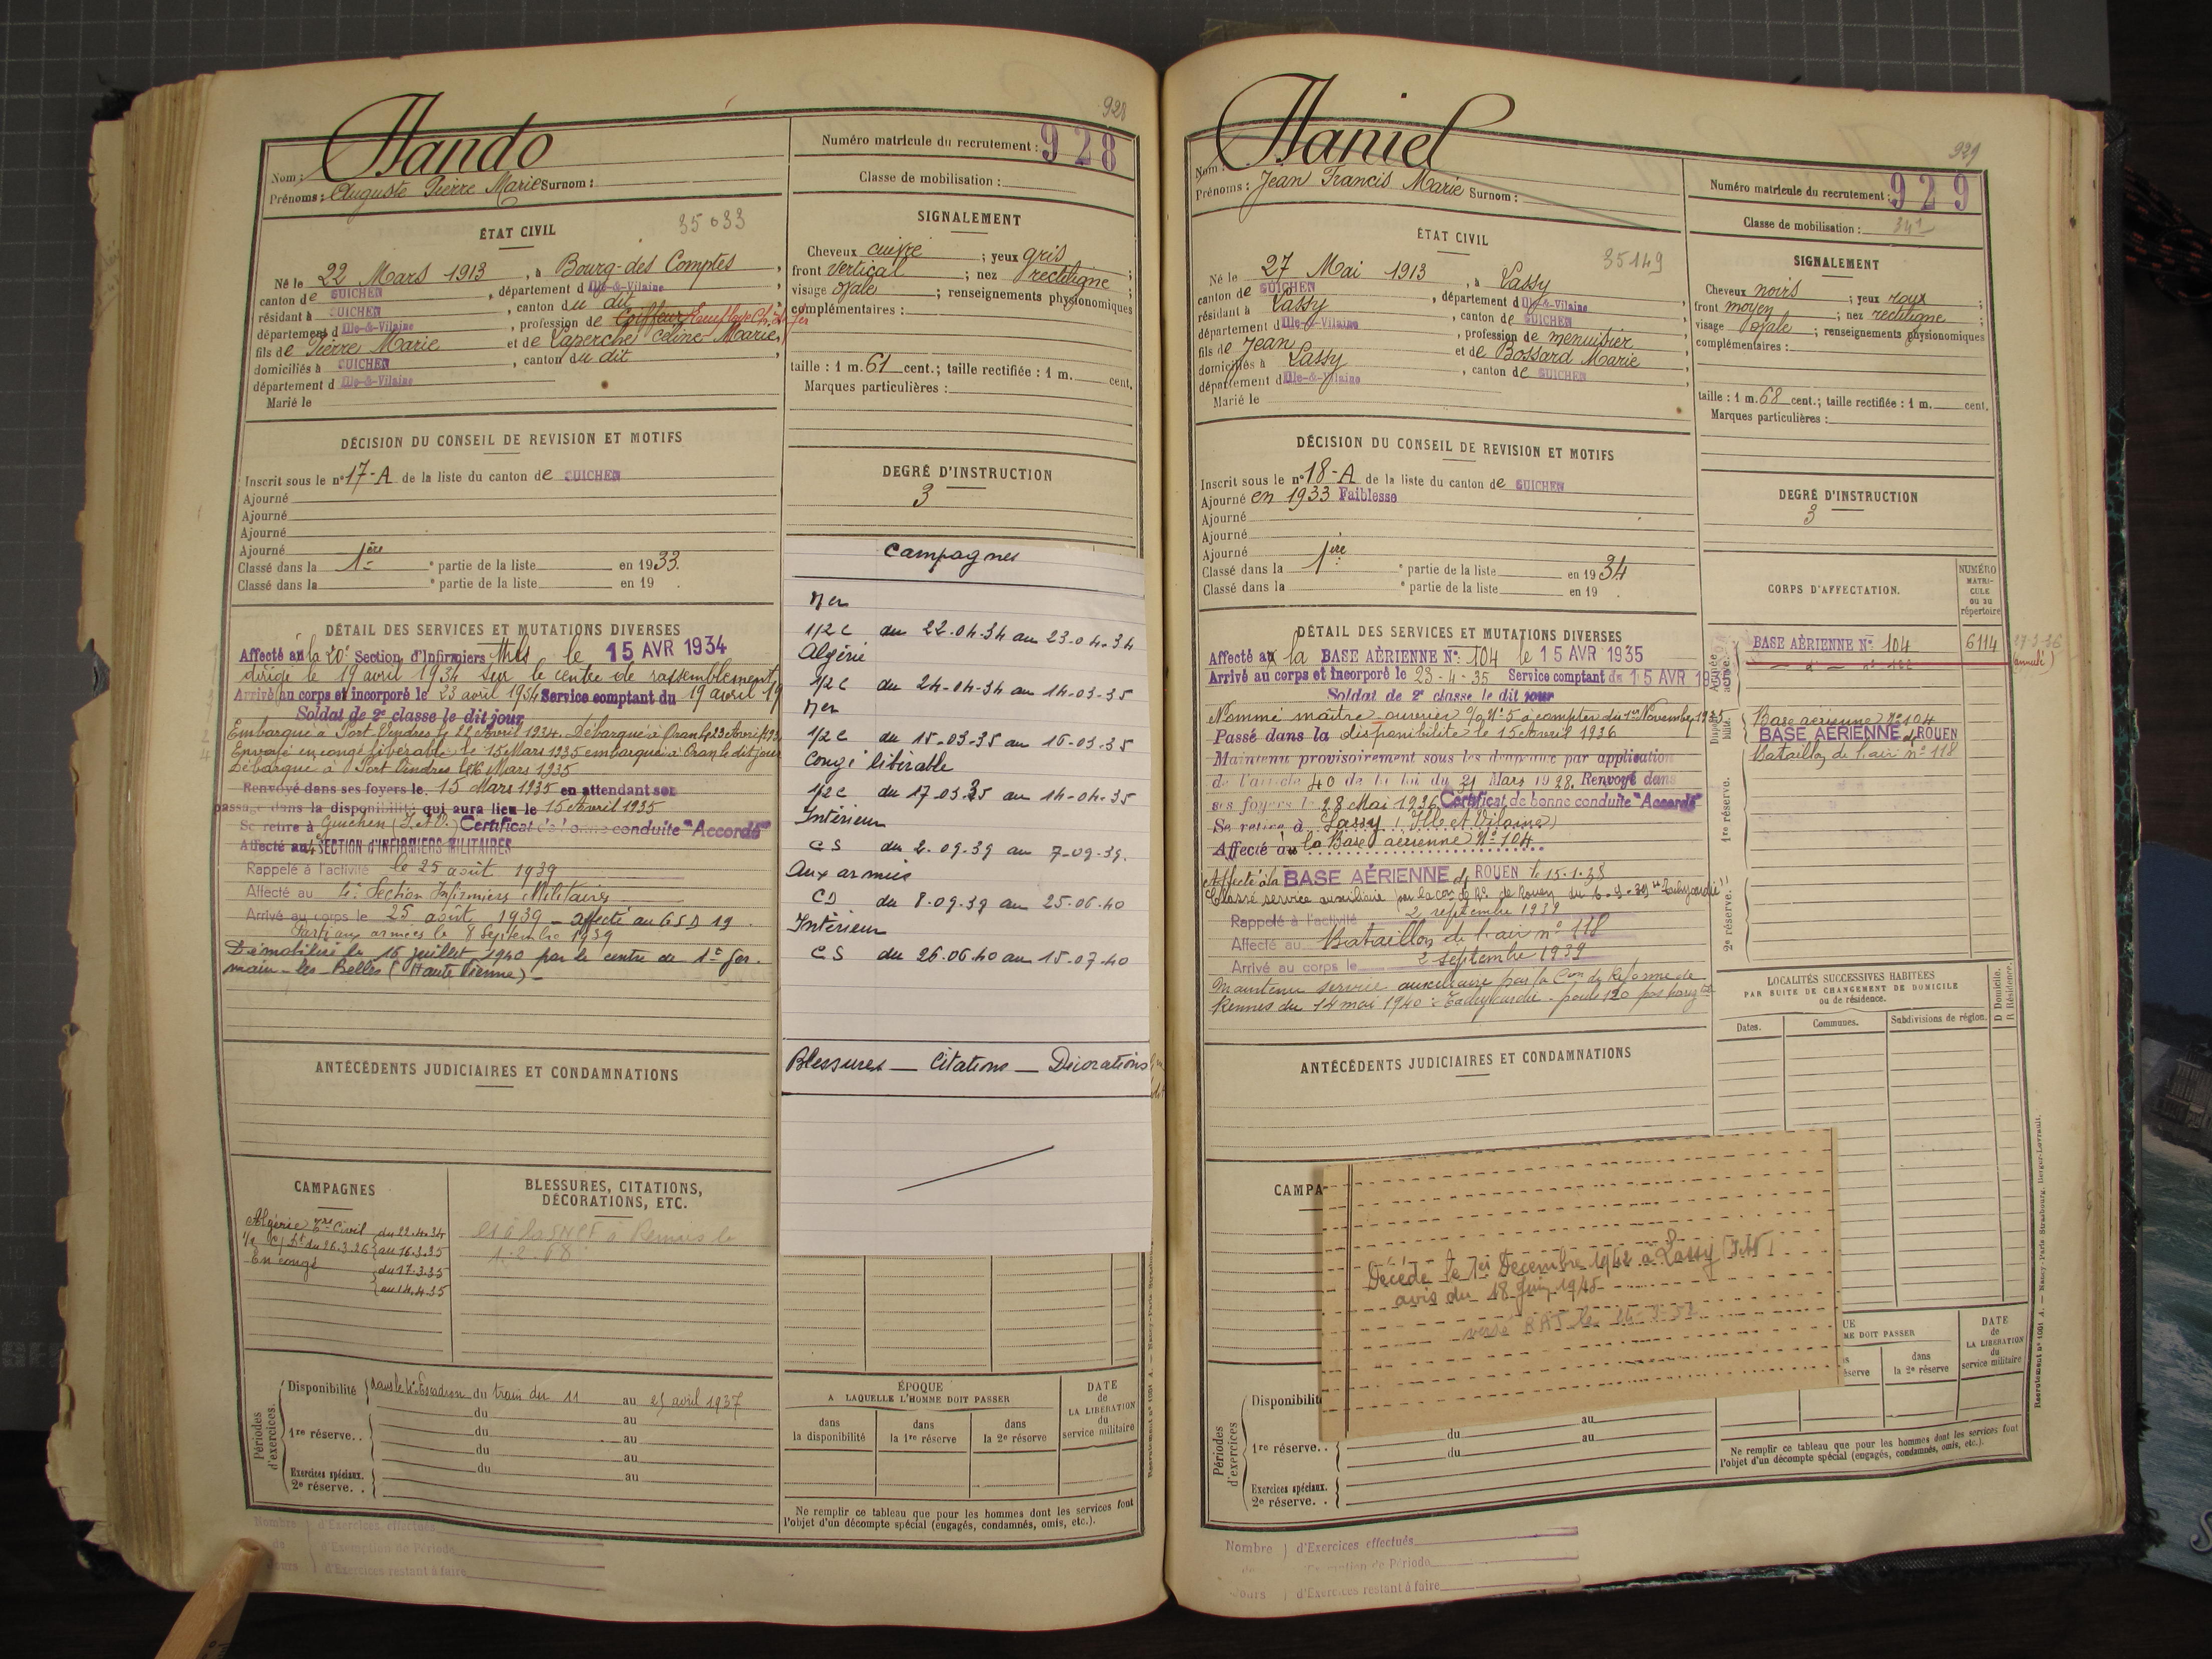 928
Nom : Hando
Prénoms : Auguste Pierre Marie Surnom :
Numéro matricule du recrutement : 928
Classe de mobilisation :
ÉTAT CIVIL
35033
Né le 22 Mars 1913, à Bourg-des Comptes,
canton de GUICHEN, département d Ille-&-Vilaine
résidant à GUICHEN, canton du dit
département d Ille-&-Vilaine, profession de Coiffeur
fils de Pierre Marie et de Laperche Céline Marie,
domiciliés à GUICHEN, canton du dit,
département d Ille-&-Vilaine
Marié le
SIGNALEMENT
Cheveux cuivre ; yeux gris ;
front vertical ; nez rectiligne ;
visage ovale ; renseignements physionomiques
complémentaires :
taille : 1 m. 61 cent.; taille rectifiée : 1 m. cent.
Marques particulières :
DÉCISION DU CONSEIL DE REVISION ET MOTIFS
Inscrit sous le n° 17-A de la liste du canton de GUICHEN
Ajourné
Ajourné
Ajourné
Ajourné
Classé dans la 1ère ᵉ partie de la liste en 1933.
Classé dans la ᵉ partie de la liste en 19 .
DEGRÉ D'INSTRUCTION
3
DÉTAIL DES SERVICES ET MUTATIONS DIVERSES
Affecté à la 20e Section d'Infirmiers Mres le 15 AVR 1934
dirigé le 19 avril 1934 sur le centre de rassemblement
Arrivé au corps et incorporé le 23 avril 1934 Service comptant du 19 avril 19
Soldat de 2e classe le dit jour
Embarqué à Port Vendres le 22 Avril 1934. Débarqué à Oran le 23 Avril 1934
Envoyé en congé libérable le 15 Mars 1935 embarqué à Oran le dit jour
Débarqué à Port Vendres le 16 Mars 1935
Renvoyé dans ses foyers le 15 Mars 1935 en attendant son
passage dans la disponibilité qui aura lieu le 15 Avril 1935
Se retire à Guichen (I. et V.) Certificat de bonne conduite "Accordé"
Affecté au 4e SECTION d'INFIRMIERS MILITAIRES
Rappelé à l'activité le 25 août 1939
Affecté au 4e Section Infirmiers Militaires
Arrivé au corps le 25 août 1939 - affecté au GSD 19
Parti aux armées le 8 Septembre 1939
Démobilisé le 16 juillet 1940 par le centre de St Ger-
main-les-Belles (Haute Vienne)-
Campagnes
Mer
1/2 C du 22-04-34 au 23-04-34
Algérie
1/2 C du 24-04-34 au 14-03-35
Mer
1/2 C du 15-03-35 au 16-03-35
Congé libérable
1/2 C du 17-03-35 au 14-04-35
Intérieur
CS du 2-09-39 au 7-09-39.
Aux armées
CD du 8-09-39 au 25-06-40
Intérieur
CS du 26-06-40 au 15-07-40
Blessures — Citations — Décorations
ANTÉCÉDENTS JUDICIAIRES ET CONDAMNATIONS
CAMPAGNES
Algérie Tre Civil du 22.4.34
1/2 C, Dt du 26.3.26 au 16.3.35
En congé du 17.3.35
au 14.4.35
BLESSURES, CITATIONS,
DÉCORATIONS, ETC.
à la SNCF à Rennes le
1.2.68
Périodes d'exercices.
Disponibilité dans le 4e Escadron du train du 11 au 25 avril 1937
du au
1re réserve. . du au
du au
Exercices spéciaux. du au
2e réserve. .
ÉPOQUE
A LAQUELLE L'HOMME DOIT PASSER
dans la disponibilité
dans la 1re réserve
dans la 2e réserve
DATE de LA LIBÉRATION du service militaire
Ne remplir ce tableau que pour les hommes dont les services font
l'objet d'un décompte spécial (engagés, condamnés, omis, etc.).
Nombre de jours
d'Exercices effectués
d'Exemption de Période
d'Exercices restant à faire
929
Nom : Haniel
Prénoms : Jean Francis Marie Surnom :
Numéro matricule du recrutement : 929
Classe de mobilisation : 341
ÉTAT CIVIL
35149
Né le 27 Mai 1913, à Lassy,
canton de GUICHEN, département d Ille-&-Vilaine
résidant à Lassy, canton de GUICHEN
département d Ille-&-Vilaine, profession de menuisier
fils de Jean et de Bossard Marie
domiciliés à Lassy, canton de GUICHEN,
département d Ille-&-Vilaine
Marié le
SIGNALEMENT
Cheveux noirs ; yeux roux ;
front moyen ; nez rectiligne ;
visage ovale ; renseignements physionomiques
complémentaires :
taille : 1 m. 68 cent.; taille rectifiée : 1 m. cent.
Marques particulières :
DÉCISION DU CONSEIL DE REVISION ET MOTIFS
Inscrit sous le n° 18-A de la liste du canton de GUICHEN
Ajourné en 1933 Faiblesse
Ajourné
Ajourné
Ajourné
Classé dans la 1ère ᵉ partie de la liste en 1934
Classé dans la ᵉ partie de la liste en 19 .
DEGRÉ D'INSTRUCTION
3
DÉTAIL DES SERVICES ET MUTATIONS DIVERSES
Affecté à la BASE AÈRIENNE N° 104 le 15 AVR 1935
Arrivé au corps et incorporé le 23-4-35 Service comptant du 15 AVR 1935
Soldat de 2e classe le dit jour
Nommé maître ouvrier N° 5 à compter du 1er Novembre 1935
Passé dans la disponibilité le 15 Avril 1936
Maintenu provisoirement sous les drapeaux par application
de l'article 40 de la loi du 31 Mars 1928. Renvoyé dans
ses foyers le 28 Mai 1936 Certificat de bonne conduite "Accordé"
Se retire à Lassy (Ille et Vilaine)
Affecté à la Base aérienne N° 104
Affecté à la BASE AÉRIENNE de ROUEN le 15.1.38
Classé service auxiliaire par la con de Re de Rouen du 6-9-39 "Tachycardie"
Rappelé à l'activité 2 septembre 1939
Affecté au Bataillon de l'air n° 118
Arrivé au corps le 2 septembre 1939
Maintenu service auxiliaire par la Con de Réforme de
Rennes du 14 mai 1940 : Tachycardie - pouls 120
CORPS D'AFFECTATION.
NUMÉRO MATRICULE ou au répertoire
Armée active.
BASE AÈRIENNE N° 104
6114
27-3-36
(annulé)
Disponibilité
Base aérienne N° 104
BASE AÉRIENNE de ROUEN
Bataillon de l'air n° 118
1re réserve.
2e réserve.
LOCALITÉS SUCCESSIVES HABITÉES
PAR SUITE DE CHANGEMENT DE DOMICILE
ou de résidence.
D Domicile.
R Résidence.
Dates.
Communes.
Subdivisions de région.
ANTÉCÉDENTS JUDICIAIRES ET CONDAMNATIONS
CAMPA
Décédé le 1er Décembre 1942 à Lassy (I.V)
avis du 18 Juin 1945
versé RAT le
Périodes d'exercices
Disponibilit
au
du au
1re réserve. . du
Exercices spéciaux.
2e réserve. .
UE
ME DOIT PASSER
éserve
dans la 2e réserve
DATE de LA LIBÉRATION du service militaire
Ne remplir ce tableau que pour les hommes dont les services font
l'objet d'un décompte spécial (engagés, condamnés, omis, etc.).
Nombre de Jours
d'Exercices effectués
d'Exemption de Période
d'Exercices restant à faire
Recrutement n° 1601 A. — Nancy-Paris Strasbourg, Berger-Levrault.